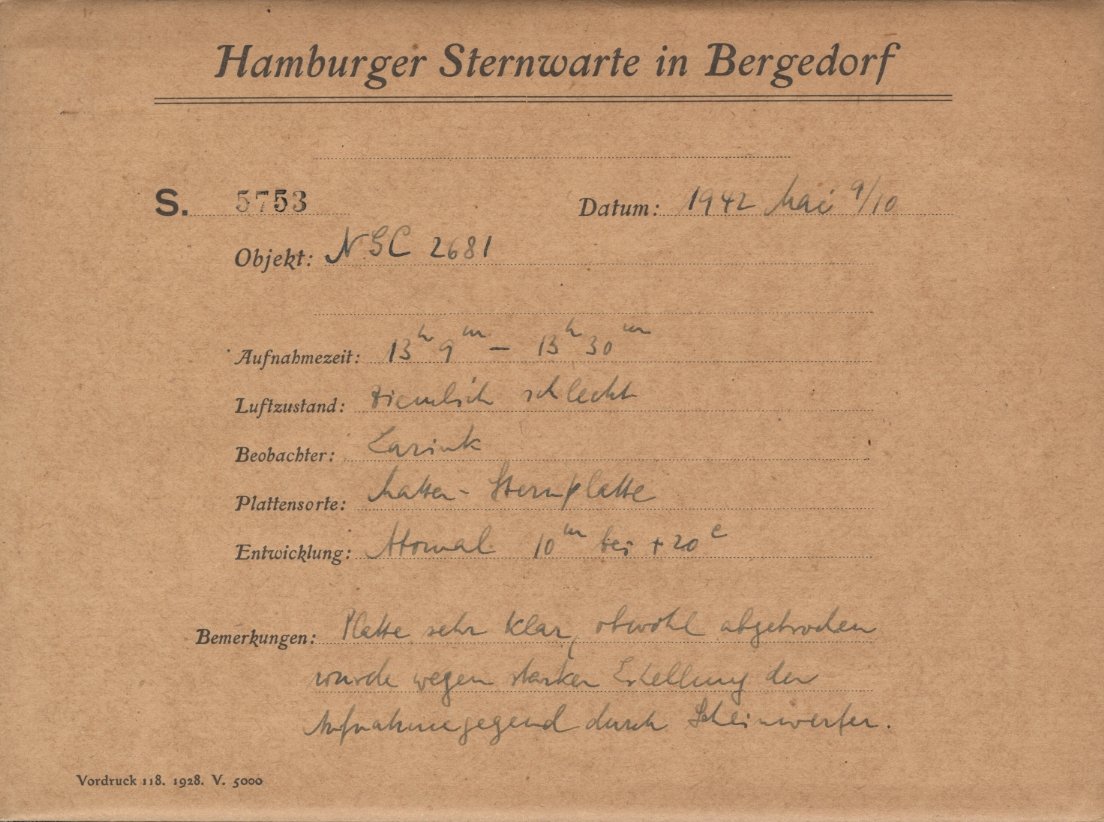 Hamburger Sternwarte in Bergedorf
S. 5753 Datum: 1942 Mai 9/10
Objekt: NGC 2681
Aufnahmezeit: 13h 9m – 13h 30m
Luftzustand: ziemlich schlecht
Beobachter: Larink
Plattensorte: Matter-Sternplatte
Entwicklung: Atomal 10m bei +20c
Bemerkungen: Platte sehr klar, obwohl abgebrochen
wurde wegen starker Erhellung der
Aufnahmegegend durch Scheinwerfer.
Vordruck 118. 1928. V. 5000